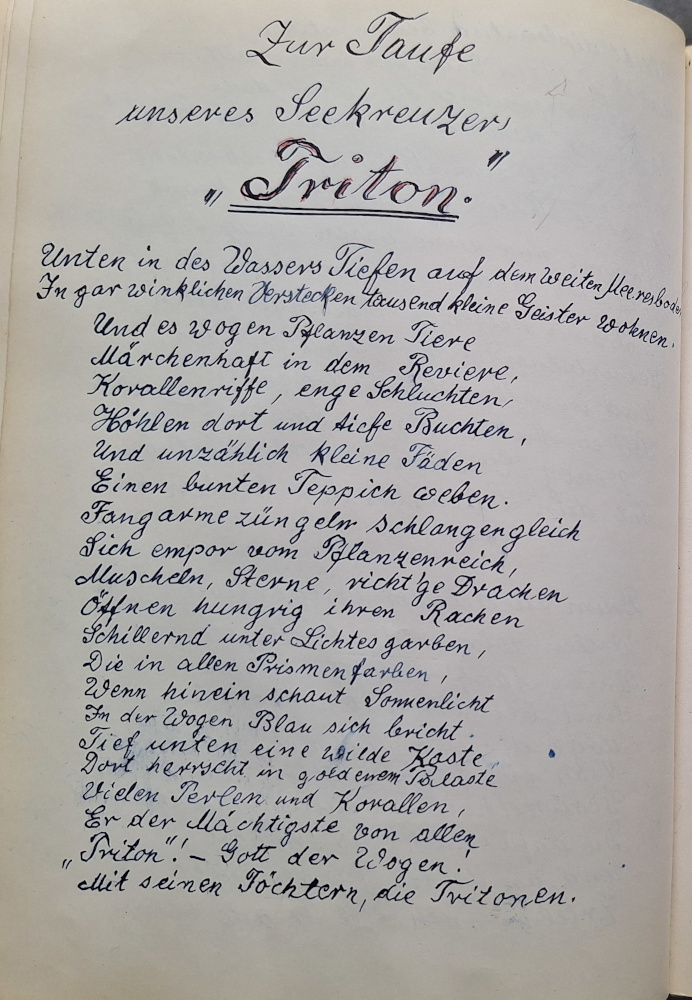 Zur Taufe
unseres Seekreuzers
„Triton."
Unten in des Wassers Tiefen auf dem weiten Meeresboden
In gar winklichen Verstecken tausend kleine Geister wohnen.
Und es wogen Pflanzen Tiere
Märchenhaft in dem Reviere,
Korallenriffe, enge Schluchten,
Höhlen dort und tiefe Buchten,
Und unzählich kleine Fäden
Einen bunten Teppich weben.
Fangarme züngeln schlangengleich
Sich empor vom Pflanzenreich,
Muscheln, Sterne, richt'ge Drachen
Öffnen hungrig ihren Rachen
Schillernd unter Lichtesgarben,
Die in allen Prismenfarben,
Wenn hinein schaut Sonnenlicht
In der Wogen Blau sich bricht.
Tief unten eine wilde Kaste,
Dort herrscht in goldenem Palaste
Vielen Perlen und Korallen,
Er der Mächtigste von allen
„Triton"! – Gott der Wogen!
Mit seinen Töchtern, die Tritonen.